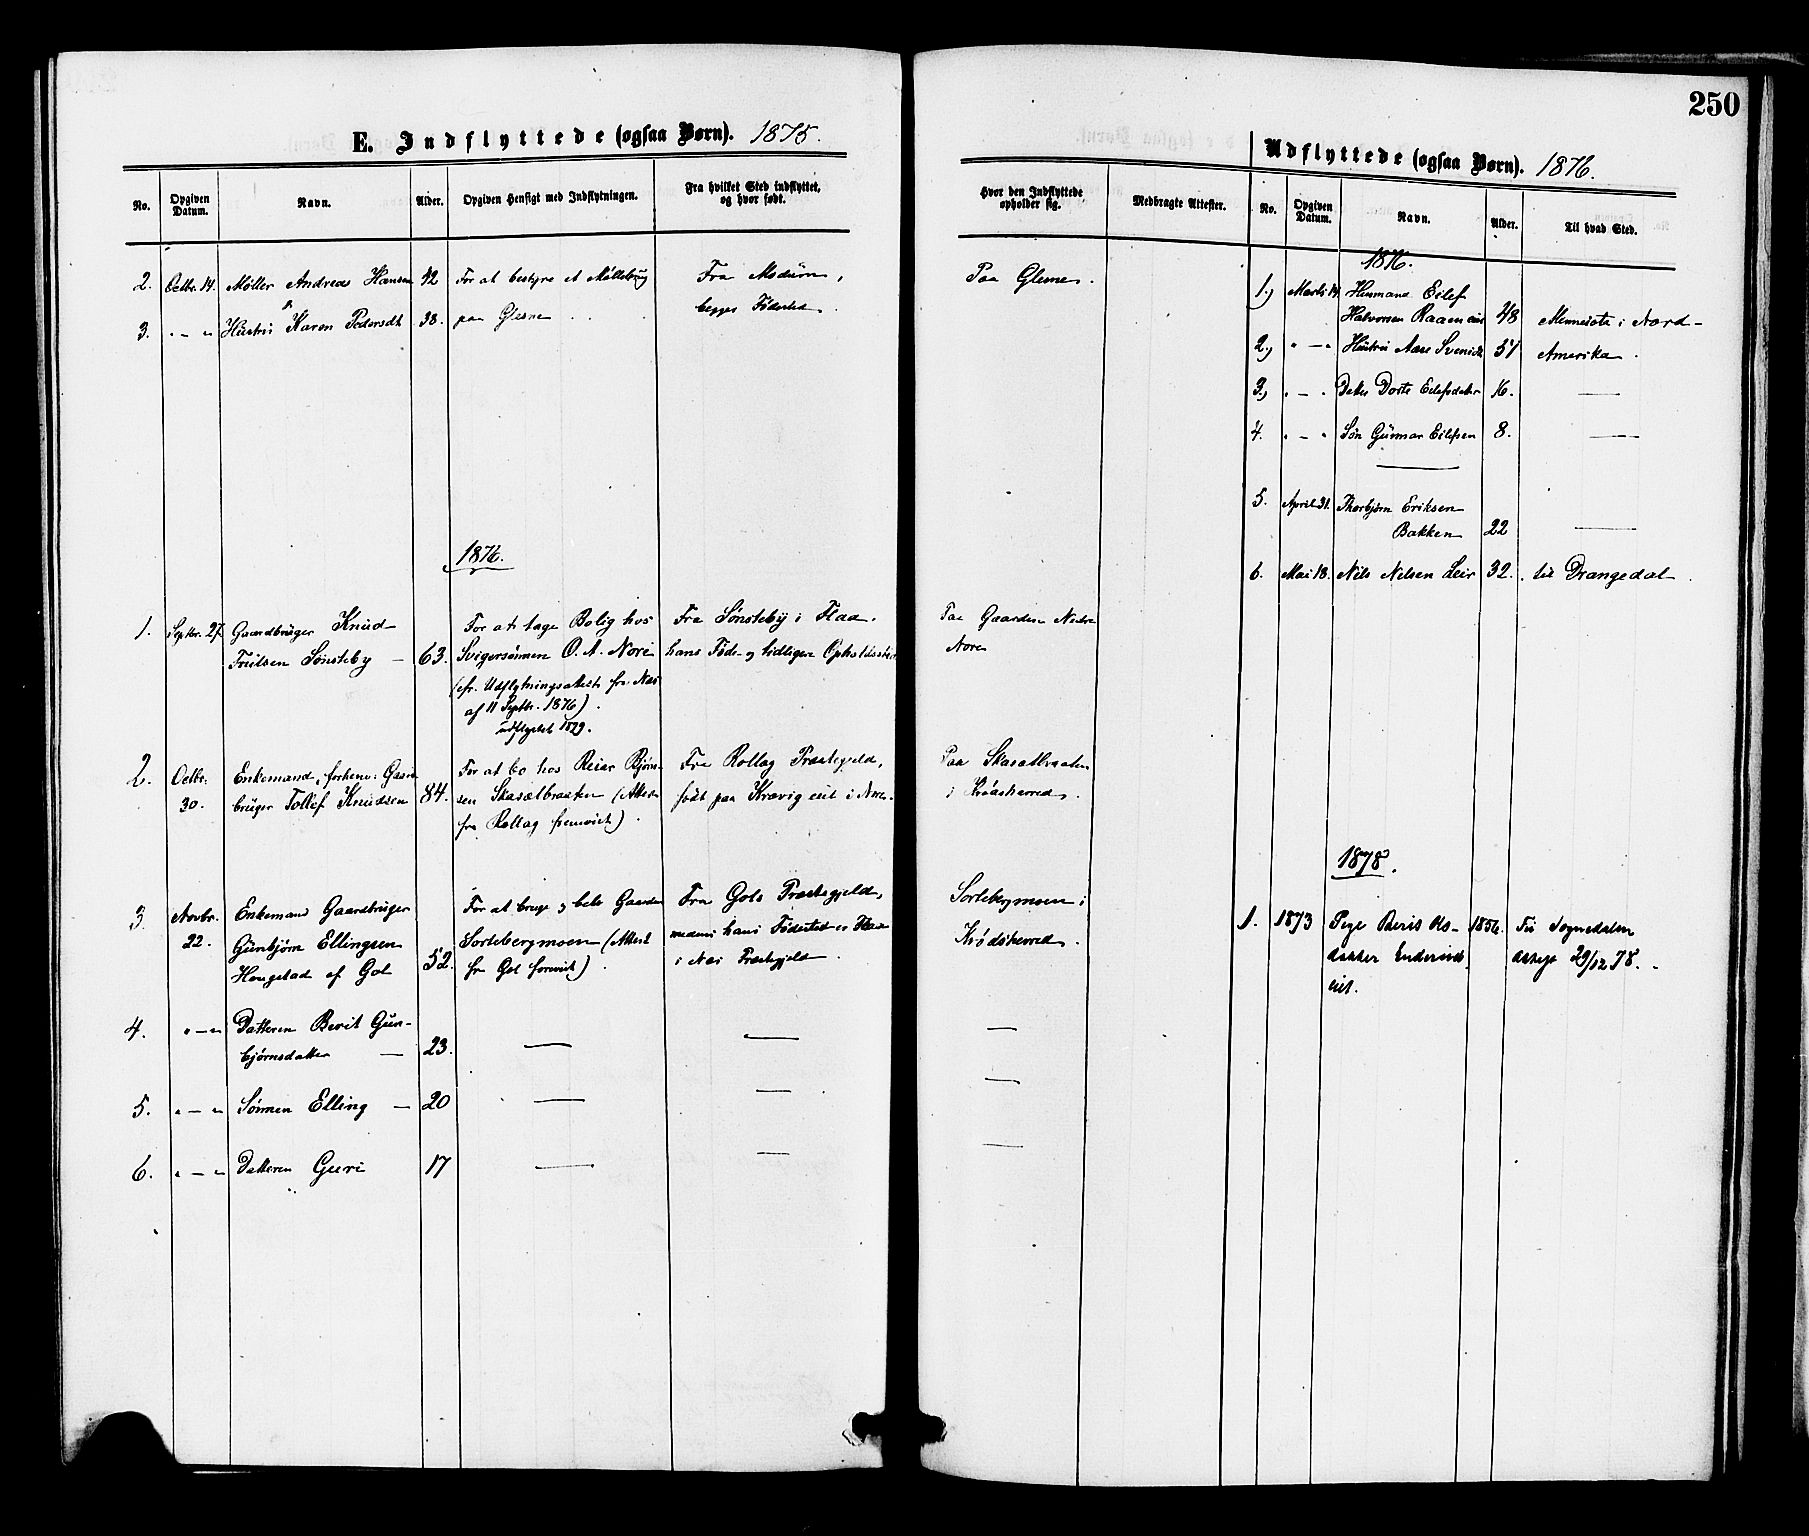 250
E. Indflyttede (ogsaa Børn). 1875.
No.
Opgiven Datum.
Navn.
Alder.
Opgiven Hensigt med Indflytningen.
Fra hvilket Sted indflyttet, og hvor født.
2. Octbr. 14. Møller Andreas Hansen 42 For at bestyre et Møllebrug Fra Modum,
3. " - " Hustru Karen Pedersdt 38. paa Glesne begges Fødested.
1876.
1. Septbr. 27. Gaardbruger Knud For at tage Bolig hos Fra Sønsteby i Flaa.
Sønsteby - 63. Svigersønnen O. A. Nore hans Føde- og tidligere Opholdssted
(cfr. Udflytningsattest fra Næs
af 11 Septbr. 1876).
udflyttet 1879.
2. Octbr. Enkemand, forhenv. Gaard- For at bo hos Reiar Bjørn- Fra Rollag Præstegjeld,
30. bruger Tollef Knudsen 84. sen Skasætbraaten (Attest født paa Kravig eit i Nore.
fra Rollag fremvist).
3. Novbr. Enkemand Gaardbruger For at bruge og bebo Gaarden Fra Gols Præstegjeld,
22. Gunbjørn Ellingsen Sortebergmoen (Attest medens hans Fødested er Flaa
Haugstad af Gol 52. fra Gol forevist). i Næs Præstegjeld.
4. " - " Datteren Berit Gun-
bjørnsdatter - 23. — —
5. " - " Sønnen Elling - 20 — —
6. " - " Datteren Guri 17 — —
Hvor den Indflyttede opholder sig.
Medbragte Attester.
Paa Glesne.
Paa Gaarden Nedre
Nore
Paa Skasætbraaten
i Krødsherred.
Sortebergmoen i
Krødsherred.
—
—
—
Udflyttede (ogsaa Børn). 1876.
No.
Opgiven Datum.
Navn.
Alder.
Til hvad Sted.
1876.
1.) Marts 14 Husmand Eilef
Halvorsen Raaen eiet 48 Minnesota i Nord-
2.) " - " Hustru Aase Svensdt 51 Amerika.
3.) " - " Datter Dorte Eilefsdatter 16. —
4. " - " Søn Gunnar Eilefsen 8. —
5. April 31. Thorbjørn Eriksen
Bakken 22 —
6. Mai 18. Nils Nelsen Leir 32. til Drangedal.
1878.
1. 1873 Pige Berit Ols- 1856. Til Sognedalen
datter Enderud- 29/12 78.
eiet.